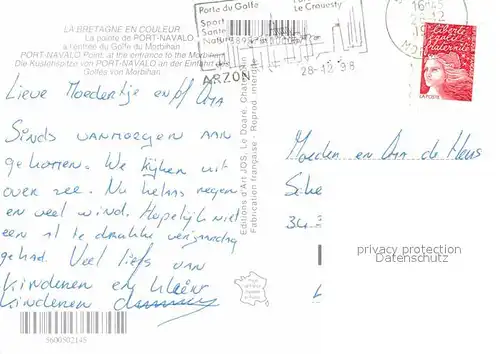 LA BRETAGNE EN COULEUR
La pointe de PORT-NAVALO
à l'entrée du Golfe du Morbihan
PORT-NAVALO Point, at the entrance to the Morbihan
Die Küstenspitze von PORT-NAVALO an der Einfahrt des
Golfes von Morbihan
Porte du Golfe
Sport
Santé
Nature
Le Crouesty
ARZON
28-12-98
16H45
28-12
LA POSTE
Liberté
égalité
fraternité
Lieve Moedertje en Opa
Sinds vanmorgen aan
gekomen. We kijken uit
over zee. Nu helaas regen
en veel wind. Hopelijk niet
een al te drukke verjaardag
gehad. Veel liefs van
kinderen en klein
kinderen
Editions d'Art JOS, Le Doaré, Chat
Fabrication française - Reprod. interdite
Moeder en Opa de
Sche
34
privacy protection
Datenschutz
5600502145